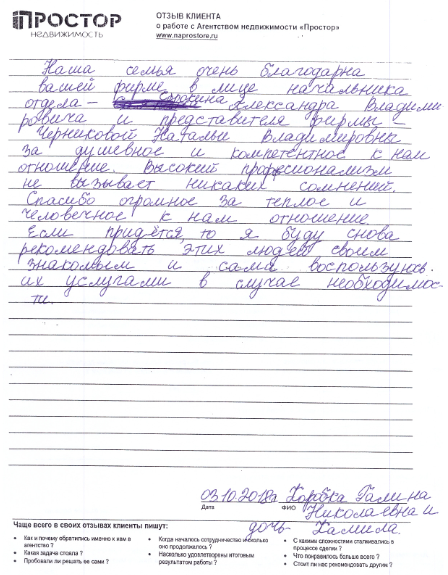 ПРОСТОР
НЕДВИЖИМОСТЬ
ОТЗЫВ КЛИЕНТА
о работе с Агентством недвижимости «Простор»
www.naprostore.ru
Наша семья очень благодарна
вашей фирме в лице начальника
отдела – Сорокина Александра Владими
ровича и представителя фирмы –
Черниковой Натальи Владимировны
за душевное и компетентное к нам
отношение. Высокий профессионализм
не вызывает никаких сомнений.
Спасибо огромное за теплое и
человечное к нам отношение
Если придётся, то я буду снова
рекомендовать этих людей своим
знакомым и сама воспользуюсь
их услугами в случае необходимос-
ти.
03.10.2018г. Коробка Галина
Дата ФИО Николаевна и
дочь Камила.
Чаще всего в своих отзывах клиенты пишут:
• Как и почему обратились именно к нам в агентство ?
• Какая задача стояла ?
• Пробовали ли решать ее сами ?
• Когда началось сотрудничество и сколько оно продолжалось ?
• Насколько удовлетворены итоговым результатом работы ?
• С какими сложностями сталкивались в процессе сделки ?
• Что понравилось больше всего ?
• Стоит ли нас рекомендовать другим ?